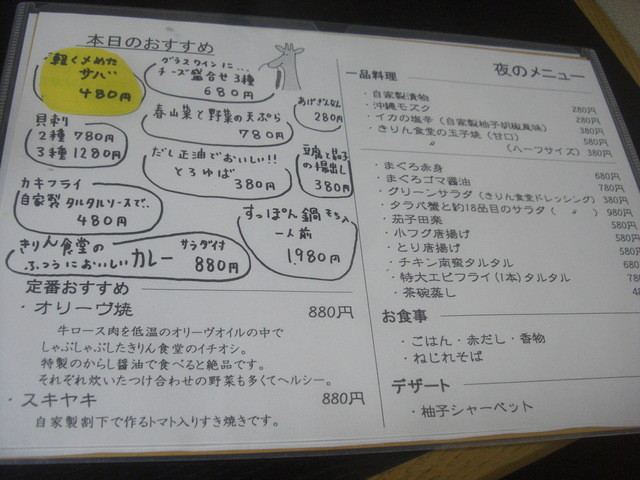 本日のおすすめ
軽く〆めた
サバ
480円
グラスワインに…
チーズ盛合せ3種
680円
あげぎんなん
280円
春山菜と野菜の天ぷら
780円
貝刺
2種 780円
3種 1280円
だし正油でおいしい!!
とろゆば
380円
豆腐と茄子
の揚出し
380円
カキフライ
自家製タルタルソースで、
480円
すっぽん鍋 もち入
一人前
1,980円
きりん食堂の
ふつうにおいしいカレー サラダ付
880円
定番おすすめ
・オリーヴ焼 880円
牛ロース肉を低温のオリーヴオイルの中で
しゃぶしゃぶしたきりん食堂のイチオシ。
特製のからし醤油で食べると絶品です。
それぞれ炊いたつけ合わせの野菜も多くてヘルシー。
・スキヤキ 880円
自家製割下で作るトマト入りすき焼きです。
夜のメニュー
一品料理
・自家製漬物 280円
・沖縄モズク 280円
・イカの塩辛(自家製柚子胡椒風味) 380円
・きりん食堂の玉子焼(甘口) 580円
〃 (ハーフサイズ) 380円
・まぐろ赤身 680円
・まぐろゴマ醤油 780円
・グリーンサラダ(きりん食堂ドレッシング) 380円
・タラバ蟹と約18品目のサラダ(〃) 980円
・茄子田楽 580円
・小フグ唐揚げ 580円
・とり唐揚げ 580円
・チキン南蛮タルタル 580円
・特大エビフライ(1本)タルタル
・茶碗蒸し
お食事
・ごはん・赤だし・香物
・ねじれそば
デザート
・柚子シャーベット